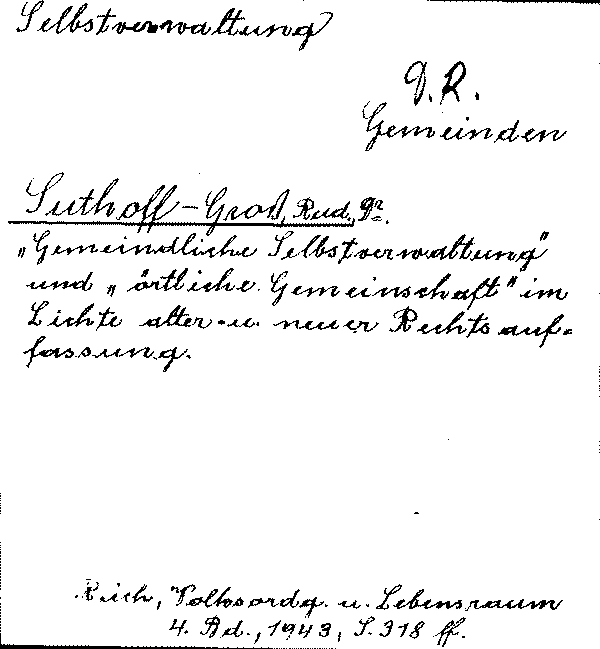 Selbstverwaltung
D.R.
Gemeinden
Suthoff-Groß, Rud., Dr.
„Gemeindliche Selbstverwaltung"
und „örtliche Gemeinschaft" im
Lichte alter u. neuer Rechtsauf-
fassung.
Reich, Volksordg. u. Lebensraum
4. Bd., 1943, S. 318 ff.